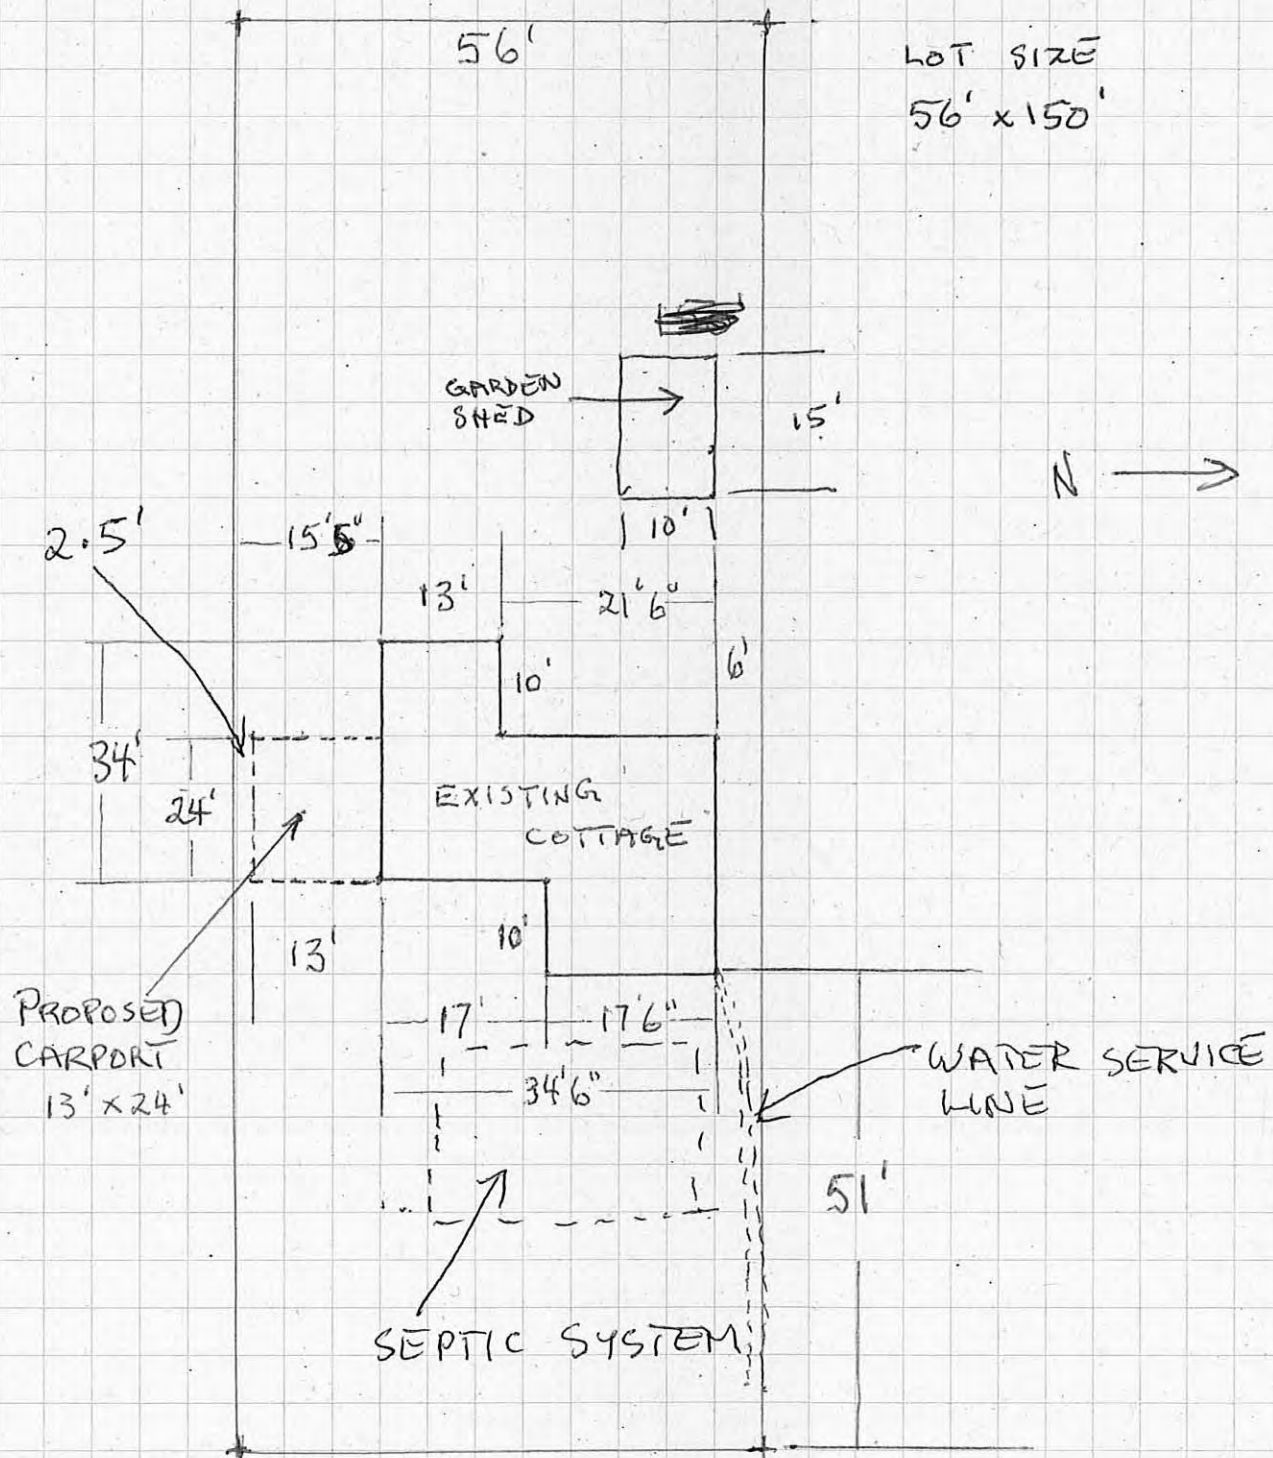 56'
LOT SIZE
56' x 150'
GARDEN
SHED
15'
N
10'
2.5'
15'6"
13'
21'6"
6'
10'
34'
24'
EXISTING
COTTAGE
10'
13'
17'
17'6"
PROPOSED
CARPORT
13' x 24'
34'6"
WATER SERVICE
LINE
51'
SEPTIC SYSTEM